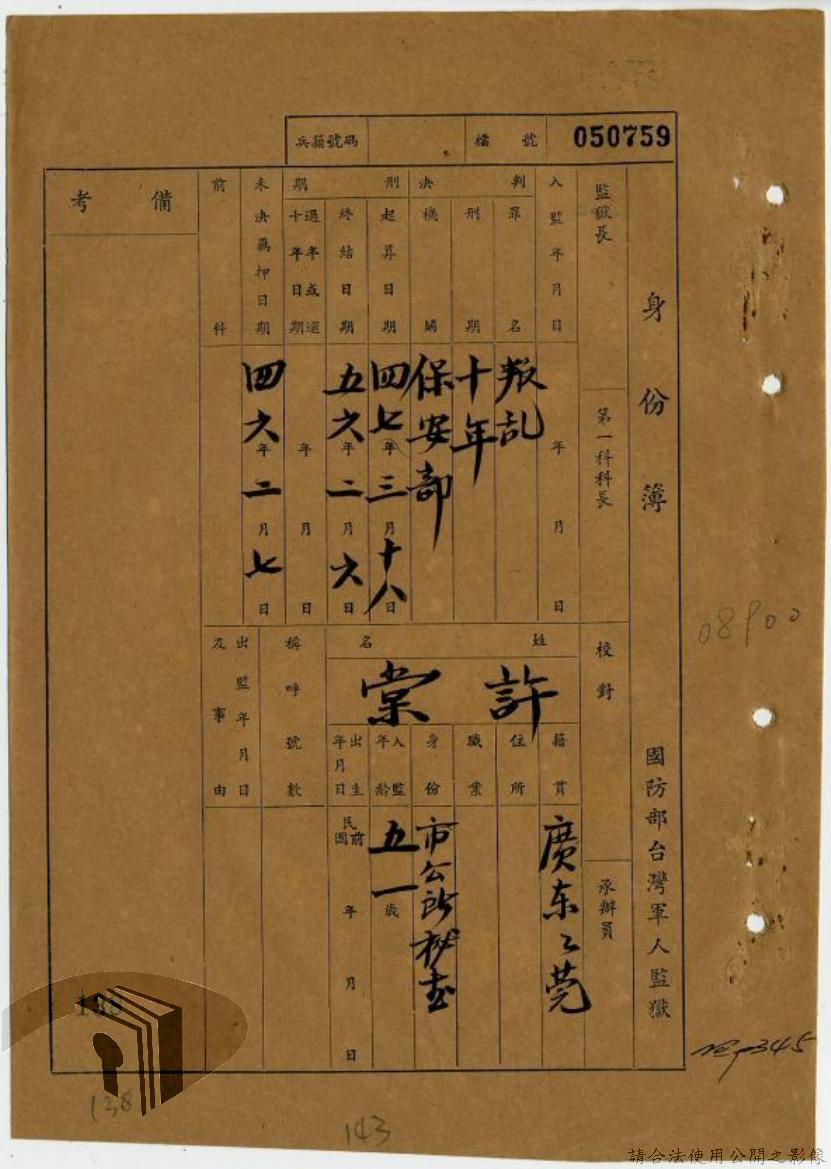 兵籍號碼
檔號
050759
身份簿
國防部台灣軍人監獄
監獄長
第一科科長
校對
承辦員
入監年月日
年 月 日
判決
罪名
叛乱
刑期
十年
機關
保安部
刑期
起算日期
四七年三月十八日
終結日期
五六年二月六日
年 月 日
未決羈押日期
四六年二月七日
前科
備考
姓名
許棠
籍貫
廣东々莞
住所
職業
身份
市公所秘书
入監年齡
五一歲
出生年月日
民國前
年 月 日
稱呼號數
出監年月日及事由
08900
138
138
143
請合法使用公開之影像